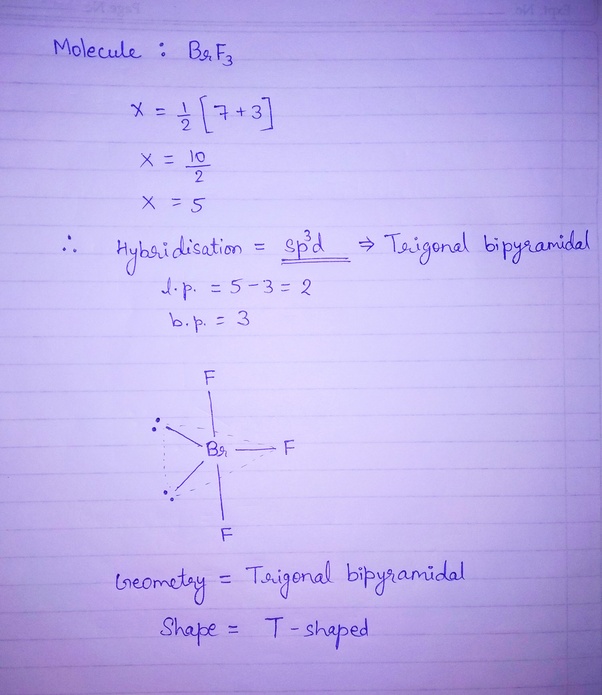 Molecule : BrF₃
x = 1/2 [7+3]
x = 10/2
x = 5
∴ Hybridisation = sp³d ⇒ Trigonal bipyramidal
l.p. = 5-3 = 2
b.p. = 3
F
Br F
F
Geometry = Trigonal bipyramidal
Shape = T-shaped